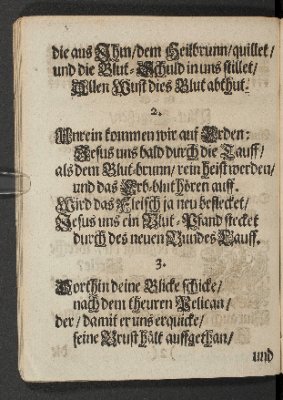 die aus Ihm/dem Heilbrunn/quillet/
und die Blut-Schuld in uns stillet/
Allen Wust dies Blut abthut.
2.
Unrein kommen wir auf Erden:
Jesus uns bald durch die Tauff/
als dem Blut-brunn/rein heist werden/
und das Erb-blut hören auff.
Wird das Fleisch ja neu beflecket/
Jesus uns ein Blut-Pfand stecket
durch des neuen Bundes Lauff.
3.
Dorthin deine Blicke schicke/
nach dem theuren Pelican/
der/damit er uns erquicke/
seine Brust hält auffgethan/
und